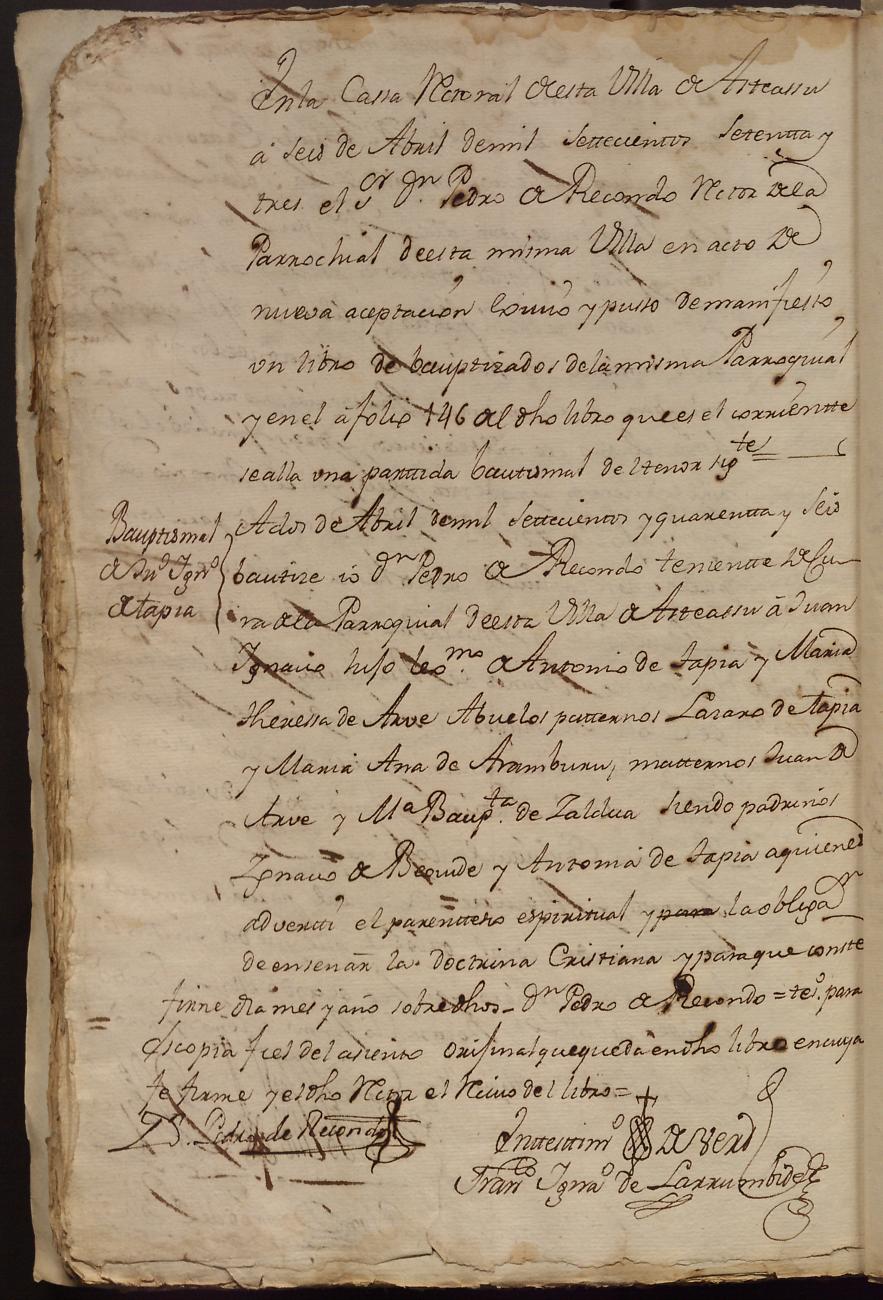 Enla Cassa Rectoral deesta Villa de Asteassu
á seis de Abril demil settecientos setentta y
tres el Sr Dn Pedro de Recondo Rector dela
Parrochial deesta misma Villa en acto de
nueva aceptacion exivió y puso demanifiesto
vn libro de bauptizados delamisma Parroquial
y enel á folio 146 del dho libro quees el corrientte
sealla vna parttida bautismal del tenor sigte
Bauptismal
de Jno Igno
de tapia
A dos de Abril demil settecientos y quarentta y seis
bautize io Dn Pedro de Recondo tenientte de Cu-
ra dela Parroquial deesta Villa de Asteassu á Juan
Ignacio hijo legmo de Antonio de tapia y Maria
theressa de Arve Abuelos patternos Lazaro de tapia
y Maria Ana de Aramburu, matternos Juan de
Arve y Ma Baupta de Zaldua siendo padrinos
Ignacio de Beguide y Antonia de tapia aquienes
advertti el parenttesco espiritual y para la obligan
de ensenar la Doctrina Cristiana y paraque conste
firme dia mes y año sobredhos - Dn Pedro de Recondo = teso para
Escopia fiel del asiento orijinal quequeda endho libro encuya
fe firme y eldho Rector el Recivo del libro =
D. Pedro de Recondo
Enttesttimo de verd
Franco Igno de Larrumbide